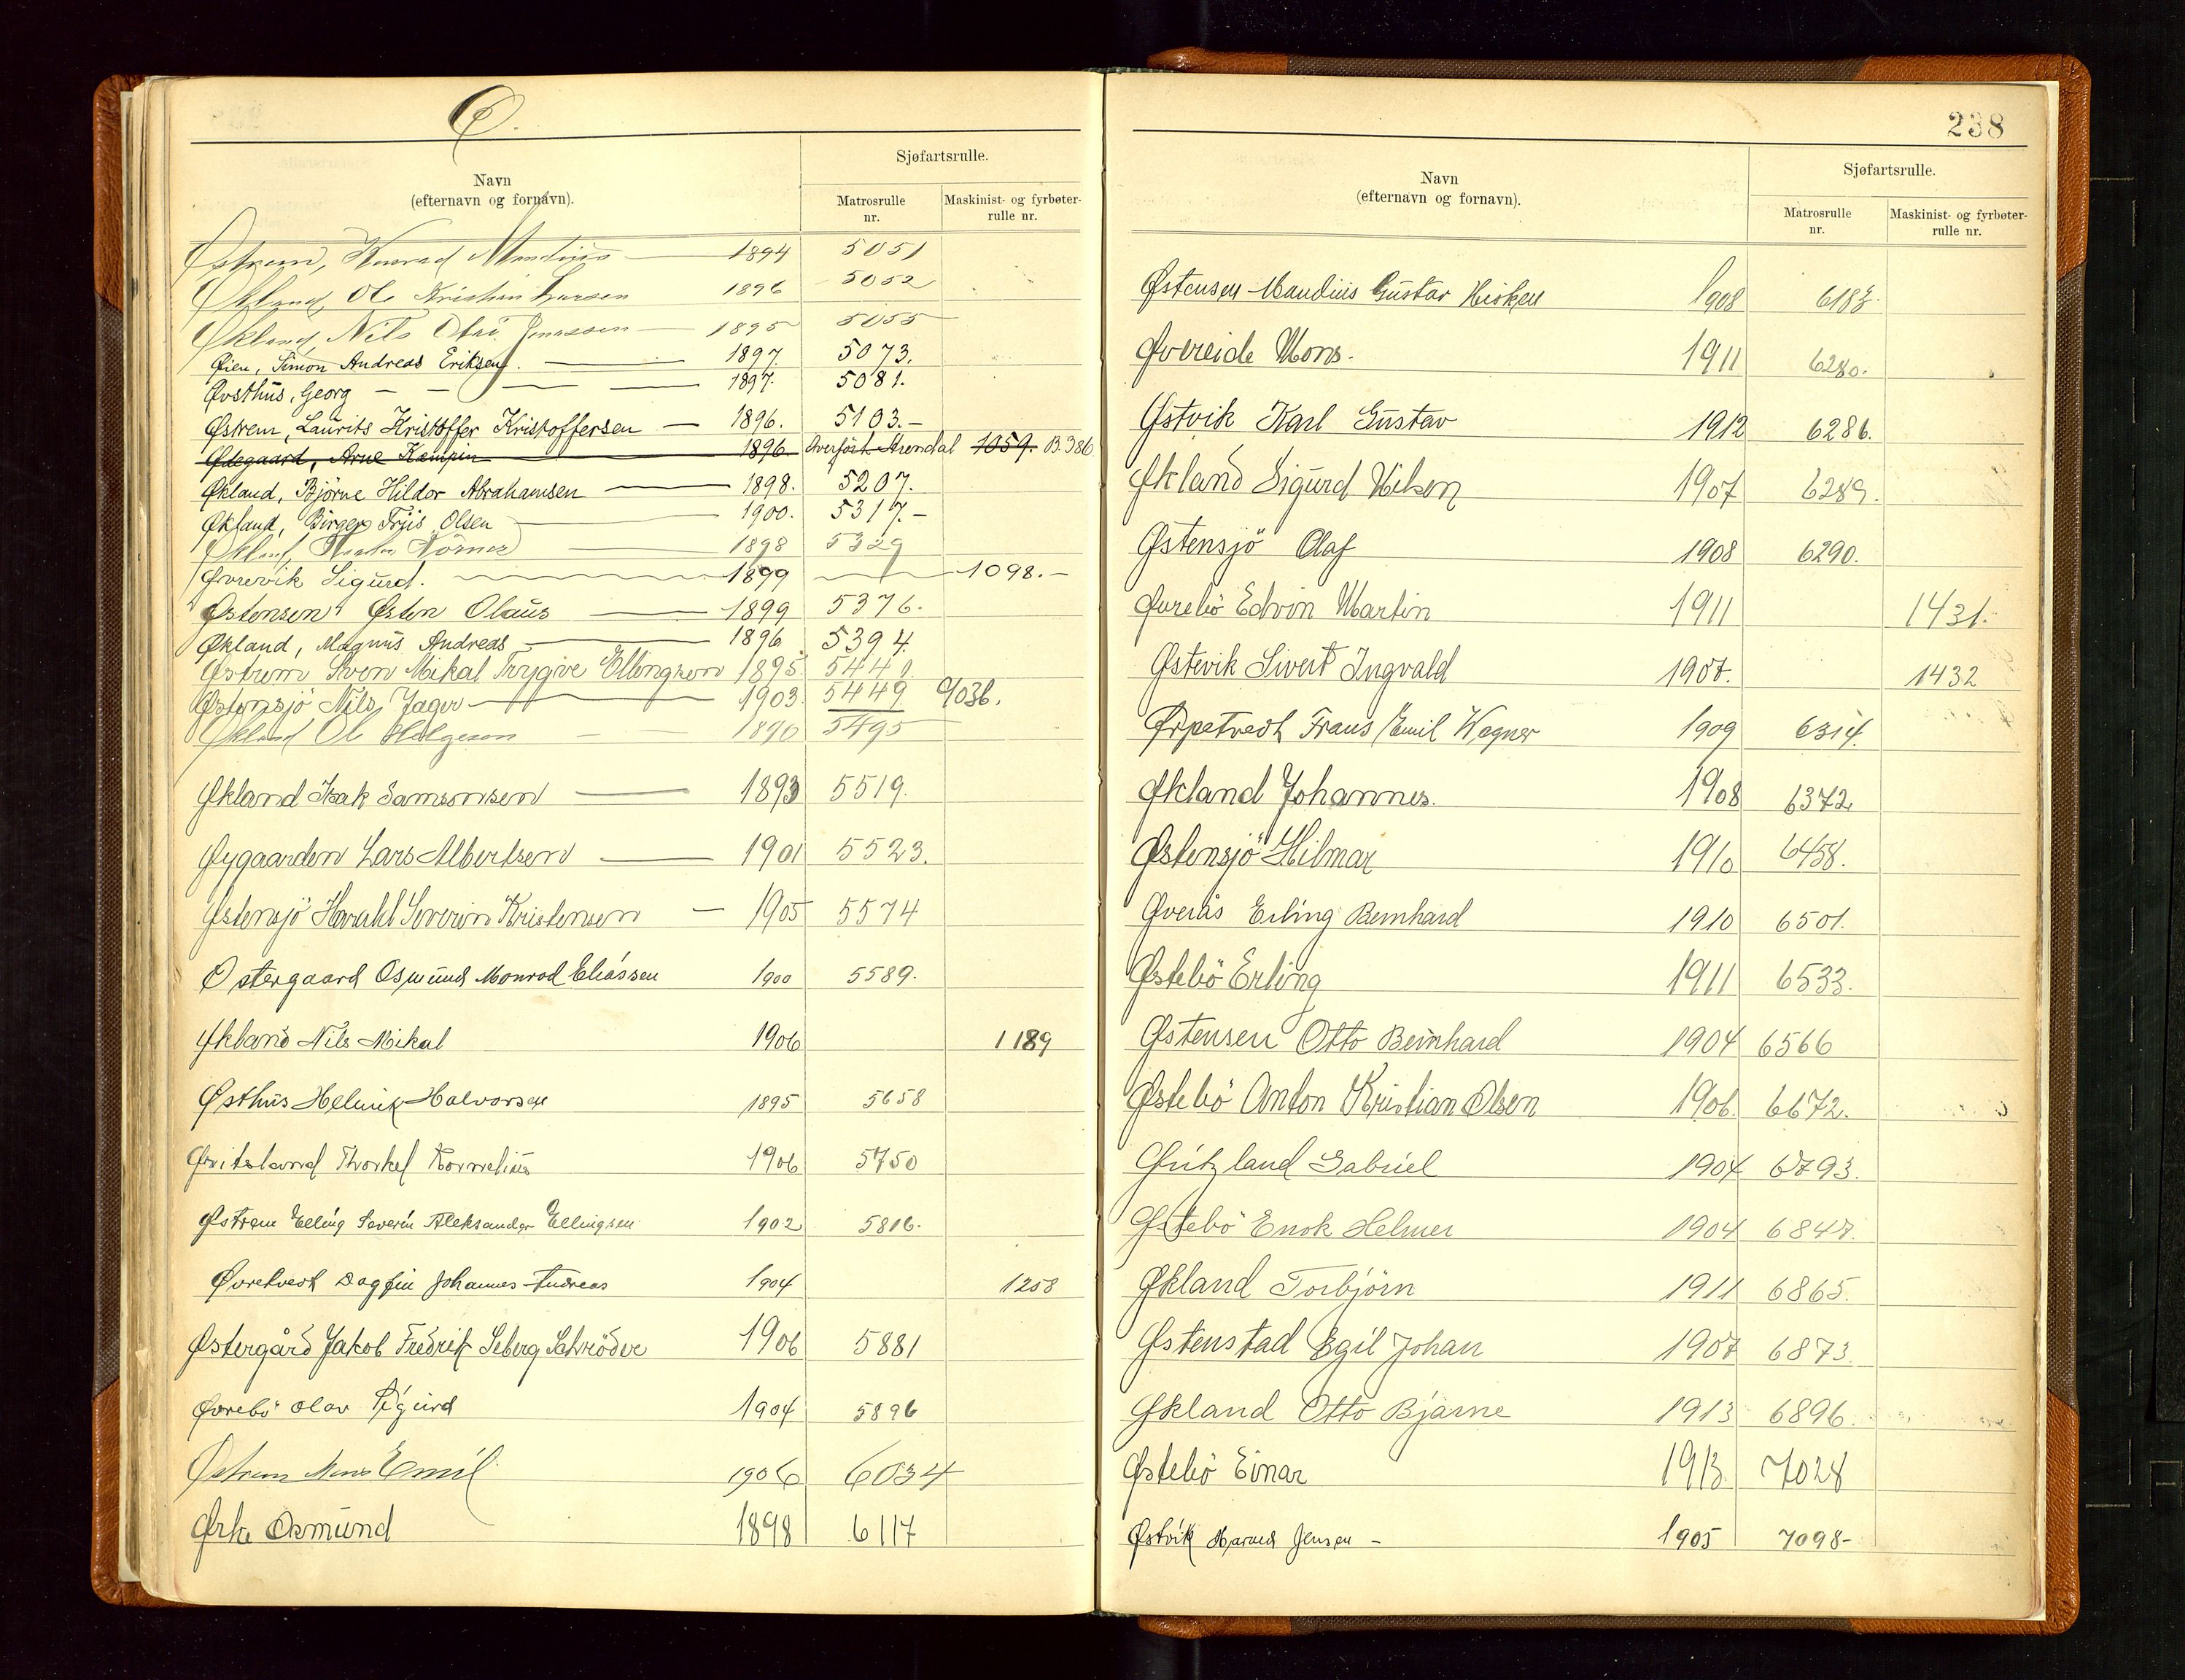 Ø.
Sjøfartsrulle.
Navn
(efternavn og fornavn).
Matrosrulle
nr.
Maskinist- og fyrbøter-
rulle nr.
Østrem, Konrad Mandius 1894 5051
Økland, Ole Kristian Larsen 1896 5052
Økland, Nils Olai Jonassen 1895 5055
Øien, Simon Andreas Eriksen. 1897. 5073.
Øvsthüs, Georg 1897. 5081.
Østrem, Laurits Kristoffer Kristoffersen 1896. 5103.-
Ødegaard, Arne Kempin 1896. Overført Arendal 1059. B.386
Økland, Björne Hildor Abrahamsen 1898. 5207.
Økland, Birger Friis Olsen 1900. 5317.-
Økland, 1898 5329
Øvrevik Sigurd. 1899 1098.-
Østensen Østen Olaus 1899 5376.
Økland, Magnus Andreas 1896 5394.
Østrem Sven Mikal Trygive Ellingsen 1895 5440.
Østensjö Nils Jager 1903. 5449 9036.
Økland Ole Helgesen 1896 5495
Økland Isak Samsonsen 1893 5519.
Øygaarden Lars Albertsen 1901 5523.
Østensjö Harald Severin Kristensen 1905 5574
Østergaard Osmund Monrad Eliassen 1900 5589.
Økland Nils Mikal 1906 1189
Østhus Helmik Halvorsen 1895 5658
Øvitsland Thorkel Kornelius 1906 5750
Østrem Elling Severin Aleksander Ellingsen 1902 5816.
Øvretvedt Dagfin Johannes Andreas 1904 1258
Østergård Jakob Fredrik Seberg Schröder 1906 5881
Øvrebö Olav Sigurd 1904 5896
Østrem Mons Emil 1906 6034
Ørke Osmund 1898 6117
238
Navn
(efternavn og fornavn).
Sjøfartsrulle.
Matrosrulle
nr.
Maskinist- og fyrbøter-
rulle nr.
Østensen Mandius Gustav Hirken 1908 6183.
Øvereide Mons. 1911 6280.
Østvik Karl Gustav 1912 6286.
Økland Sigurd Nilsen 1907 6289.
Østensjö Olaf 1908 6290.
Øvrebö Edvin Martin 1911 1431.
Østevik Sivert Ingvald 1907. 1432
Ørpetvedt Frans Emil Wegner 1909 6314.
Økland Johannes. 1908 6372
Østensjö Hilmar 1910 6458.
Øverås Erling Bernhard 1910 6501.
Østebö Erling 1911 6533.
Østensen Otto Bernhard 1904 6566
Østebö Anton Kristian Olsen 1906. 6672.
Øritzland Gabriel 1904 6793.
Østebö Enok Helmer 1904 6847.
Økland Torbjörn 1911 6865.
Østenstad Egil Johan 1907 6873.
Økland Otto Bjarne 1913 6896.
Østebö Einar 1913. 7028
Østvik Harald Jensen - 1905 7098-